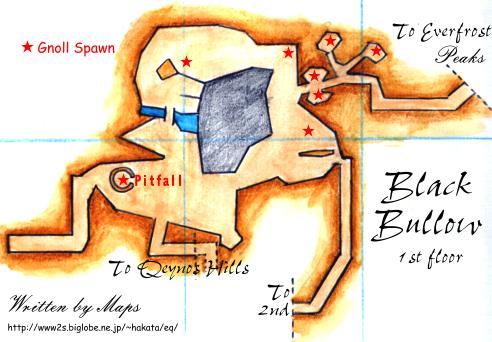 ★ Gnoll Spawn
To Everfrost
Peaks
Pitfall
Black
Bullow
1st floor
To Qeynos Hills
To
2nd
Written by Maps
http://www2s.biglobe.ne.jp/~hakata/eq/